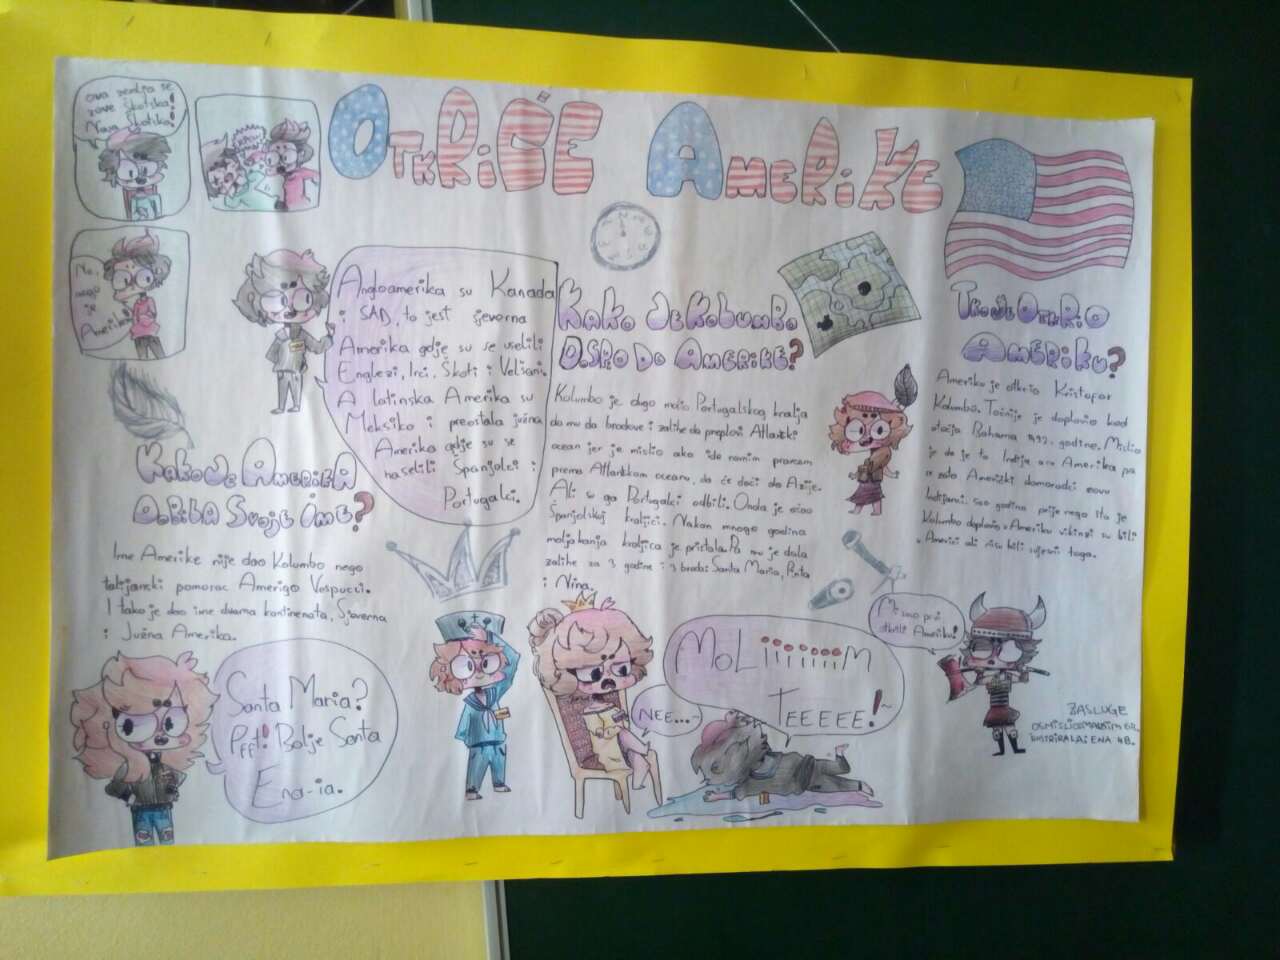 Ova zemlja se
zove Škotska!
Nova Škotska!
Ne,
nego
je
Amerika!
OTKRIĆE AMERIKE
Angloamerika su Kanada
i SAD, to jest sjeverna
Amerika gdje su se uselili
Englezi, Irci, Škoti i Velšani.
A latinska Amerika su
Meksiko i preostala južna
Amerika gdje su se
naselili Španjolci i
Portugalci.
KAKO JE AMERIKA
DOBILA SVOJE IME?
Ime Amerike nije dao Kolumbo nego
talijanski pomorac Amerigo Vespucci.
I tako je dao ime dvama kontinenata, Sjeverna
i Južna Amerika.
Santa Maria?
Pfft! Bolje Santa
Ena-ia.
KAKO JE KOLUMBO
DOSPIO DO AMERIKE?
Kolumbo je dugo molio Portugalskog kralja
da mu da brodove i zalihe da preplovi Atlantski
ocean jer je mislio ako ide ravnim pravcem
prema Atlantskom oceanu, da će doći do Azije.
Ali su ga Portugalci odbili. Onda je otišao
Španjolskoj kraljici. Nakon mnogo godina
moljakanja kraljica je pristala. Pa mu je dala
zalihe za 3 godine i 3 broda: Santa Maria, Pinta
i Nina.
NEE...~
MOLiiiiiiiM
TEEEEE!~
TKO JE OTKRIO
AMERIKU?
Ameriku je otkrio Kristofor
Kolumbo. Točnije je doplovio kod
otočja Bahama 1492. godine. Mislio
je da je to Indija a ne Amerika pa
se zato Američki domorodci zovu
Indijanci. 500 godina prije nego što je
Kolumbo doplovio u Ameriku vikinzi su bili
u Americi ali nisu bili svjesni toga.
Mi smo prvi
otkrili Ameriku!
ZASLUGE
OSMISLIO: MAKSIM 6.R.
ILUSTRIRALA: ENA 4B.